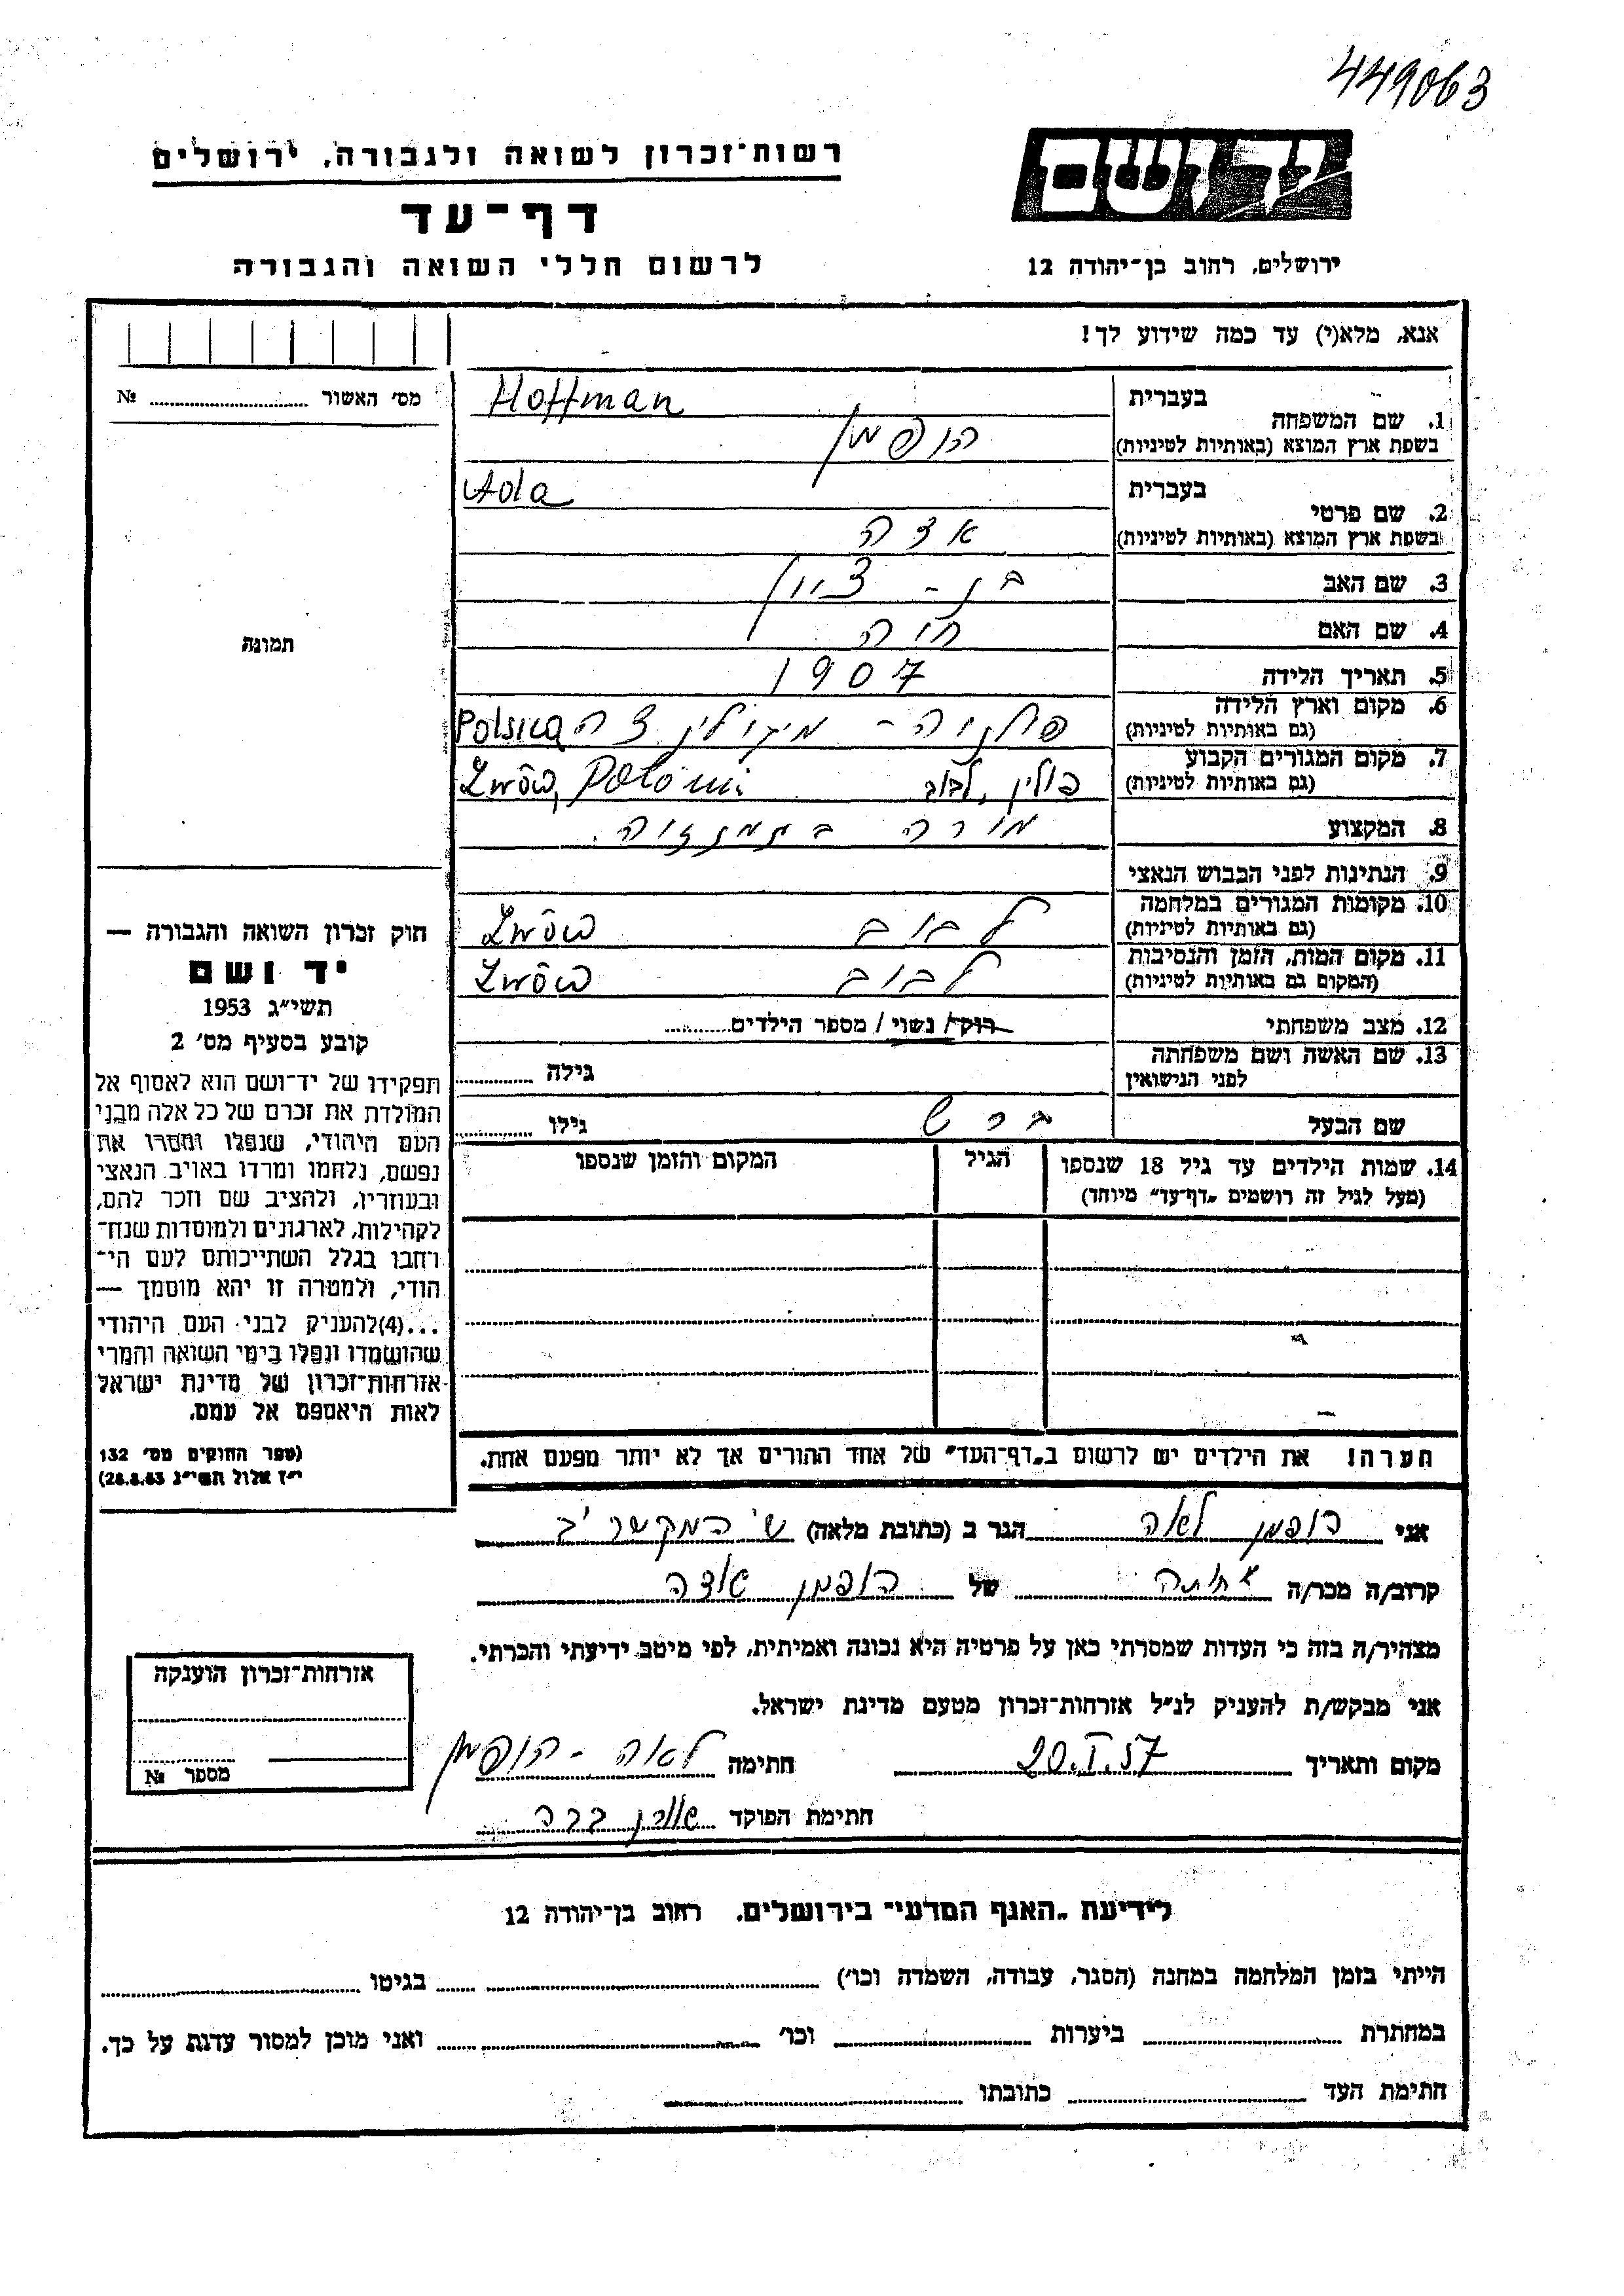 449063
יד ושם
רשות־זכרון לשואה ולגבורה, ירושלים
דף־עד
לרשום חללי השואה והגבורה
ירושלים, רחוב בן־יהודה 12
אנא, מלא(י) עד כמה שידוע לך!
מס׳ האשור № 
1. שם המשפחה בעברית Hoffman
בשפת ארץ המוצא (באותיות לטיניות) הופמן
2. שם פרטי בעברית Ada
בשפת ארץ המוצא (באותיות לטיניות) אדה
3. שם האב בן - ציון
4. שם האם חוה
5. תאריך הלידה 1907
6. מקום וארץ הלידה
(גם באותיות לטיניות)
7. מקום המגורים הקבוע פולין, לבוב Lwów,
(גם באותיות לטיניות)
8. המקצוע מורה
9. הנתינות לפני הכבוש הנאצי
10. מקומות המגורים במלחמה לבוב Lwów
(גם באותיות לטיניות)
11. מקום המות, הזמן והנסיבות לבוב Lwów
(המקום גם באותיות לטיניות)
12. מצב משפחתי רוק/ נשוי/ מספר הילדים
13. שם האשה ושם משפחתה
לפני הנישואין גילה
שם הבעל ברש גילו
14. שמות הילדים עד גיל 18 שנספו הגיל המקום והזמן שנספו
(מעל לגיל זה רושמים „דף־עד״ מיוחד)
הערה! את הילדים יש לרשום ב„דף־העד״ של אחד ההורים אך לא יותר מפעם אחת.
תמונה
חוק זכרון השואה והגבורה —
יד ושם
תשי״ג 1953
קובע בסעיף מס׳ 2
תפקידו של יד־ושם הוא לאסוף אל
המולדת את זכרם של כל אלה מבני
העם היהודי, שנפלו ומסרו את
נפשם, נלחמו ומרדו באויב הנאצי
ובעוזריו, ולהציב שם וזכר להם,
לקהילות, לארגונים ולמוסדות שנח־
רחבו בגלל השתייכותם לעם הי־
הודי, ולמטרה זו יהא מוסמך —
...(4)להעניק לבני העם היהודי
שהושמדו ונפלו בימי השואה והמרי
אזרחות־זכרון של מדינת ישראל
לאות היאספם אל עמם.
(ספר החוקים מס׳ 132
י״ז אלול תשי״ג 28.8.53)
אני הופמן לאה הגר ב (כתובת מלאה)
קרוב/ה מכר/ה אחותה של הופמן
מצהיר/ה בזה כי העדות שמסרתי כאן על פרטיה היא נכונה ואמיתית, לפי מיטב ידיעתי והכרתי.
אני מבקש/ת להעניק לנ״ל אזרחות־זכרון מטעם מדינת ישראל.
מקום ותאריך 20.I.57 חתימה לאה - הופמן
חתימת הפוקד
אזרחות־זכרון הוענקה
מספר №
לידיעת „האגף המדעי״ בירושלים, רחוב בן־יהודה 12
הייתי בזמן המלחמה במחנה (הסגר, עבודה, השמדה וכו׳) בגיטו
במחתרת ביערות וכו׳ ואני מוכן למסור עדות על כך.
חתימת העד כתובתו